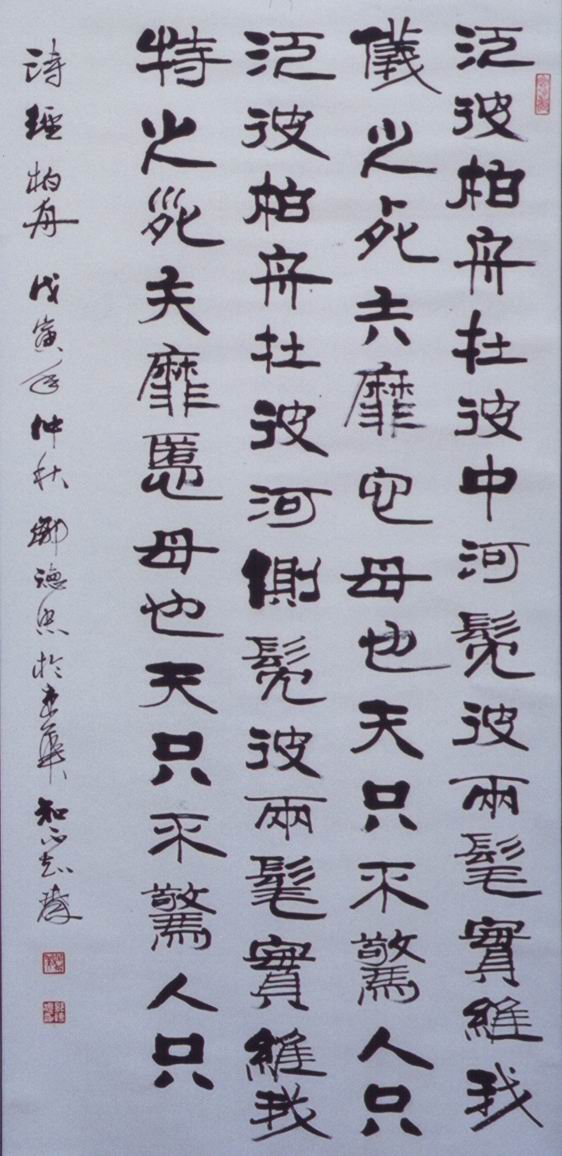 汎彼柏舟在彼中河髧彼兩髦實維我
儀之死矢靡它母也天只不驚人只
汎彼柏舟在彼河側髧彼兩髦實維我
特之死矢靡慝母也天只不驚人只
詩經柏舟 戊寅年仲秋 鄭德 於東華 知不